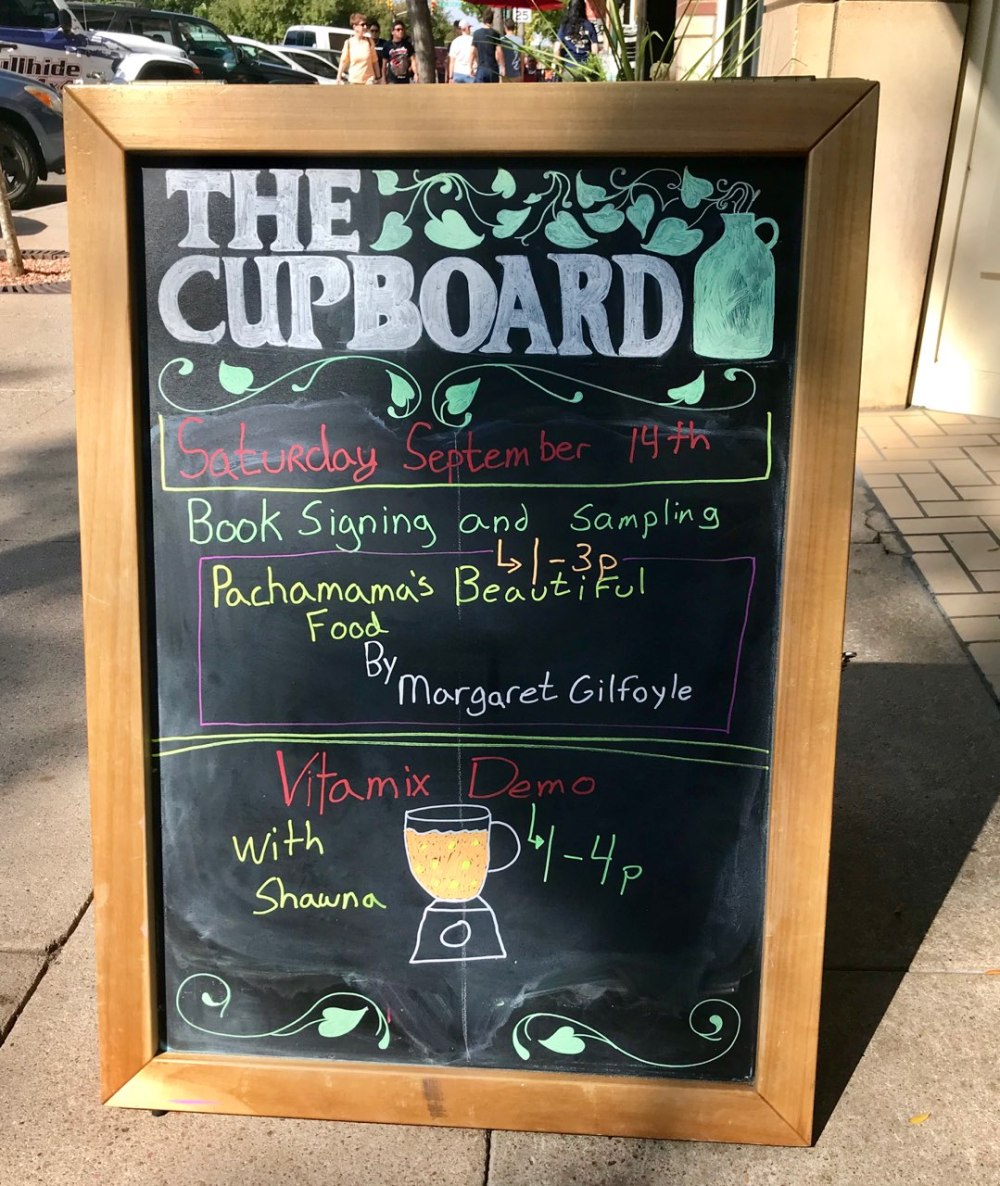 THE
CUPBOARD
Saturday September 14th
Book Signing and Sampling
↳ 1-3p
Pachamama's Beautiful
Food
By
Margaret Gilfoyle
Vitamix Demo
With
Shawna
↳ 1-4p
25